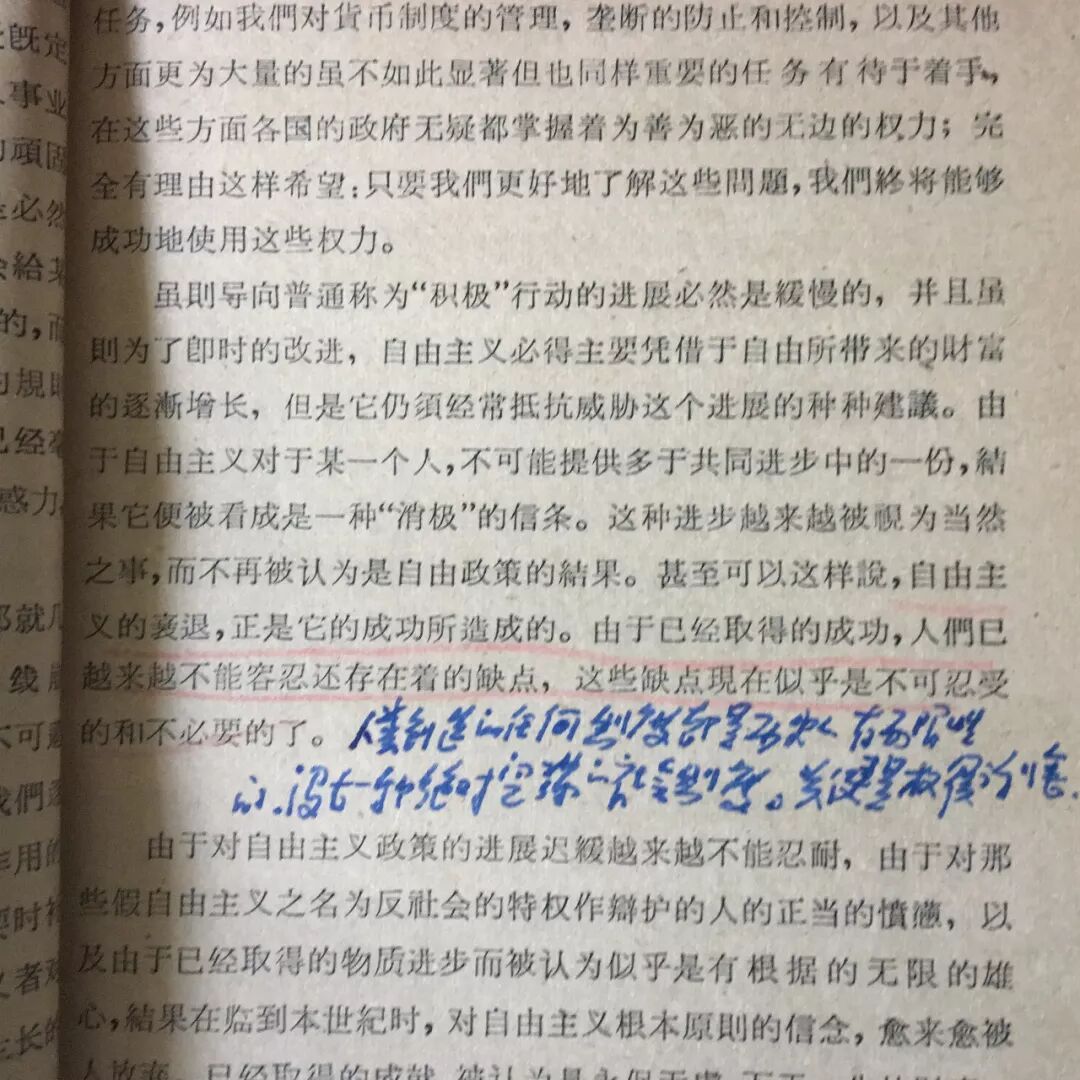 任务,例如我們对貨币制度的管理,垄断的防止和控制,以及其他
方面更为大量的虽不如此显著但也同样重要的任务有待于着手,
在这些方面各国的政府无疑都掌握着为善为恶的无边的权力；完
全有理由这样希望:只要我們更好地了解这些問題,我們終将能够
成功地使用这些权力。
虽則导向普通称为“积极”行动的进展必然是緩慢的，并且虽
則为了卽时的改进，自由主义必得主要凭借于自由所带来的財富
的逐漸增长，但是它仍須经常抵抗威胁这个进展的种种建議。由
于自由主义对于某一个人,不可能提供多于共同进步中的一份,結
果它便被看成是一种“消极”的信条。这种进步越来越被視为当然
之事,而不再被认为是自由政策的結果。甚至可以这样說,自由主
义的衰退,正是它的成功所造成的。由于已经取得的成功,人們已
越来越不能容忍还存在着的缺点，这些缺点現在似乎是不可忍受
的和不必要的了。
人类创造的任何制度都是
的.没有一种绝对完满的社会制度。关键是权衡利害.
由于对自由主义政策的进展迟緩越来越不能忍耐，由于对那
些假自由主义之名为反社会的特权作辯护的人的正当的憤懣，以
及由于已经取得的物质进步而被认为似乎是有根据的无限的雄
心,結果在临到本世紀时，对自由主义根本原則的信念，愈来愈被